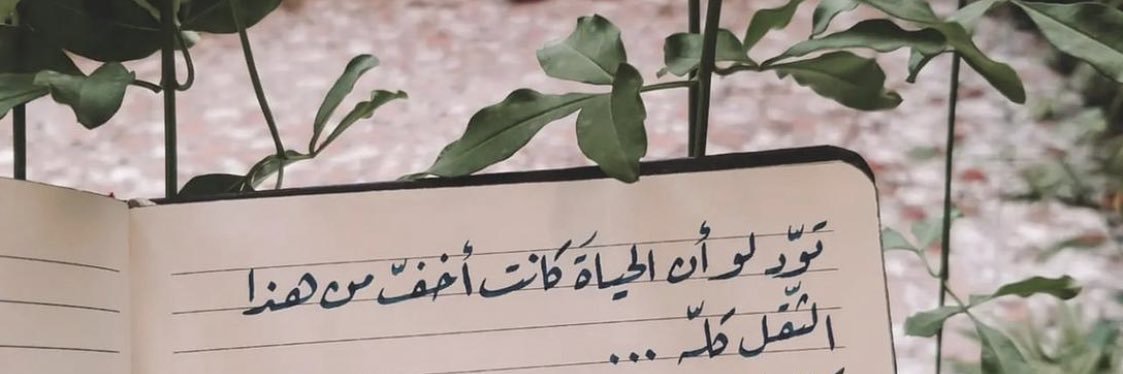 تودّ لو أن الحياةَ كانت أخفّ من هذا
الثّقل كلّه ...